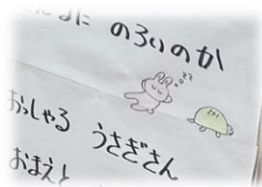 んなに のろいのか
おっしゃる うさぎさん
おまえと